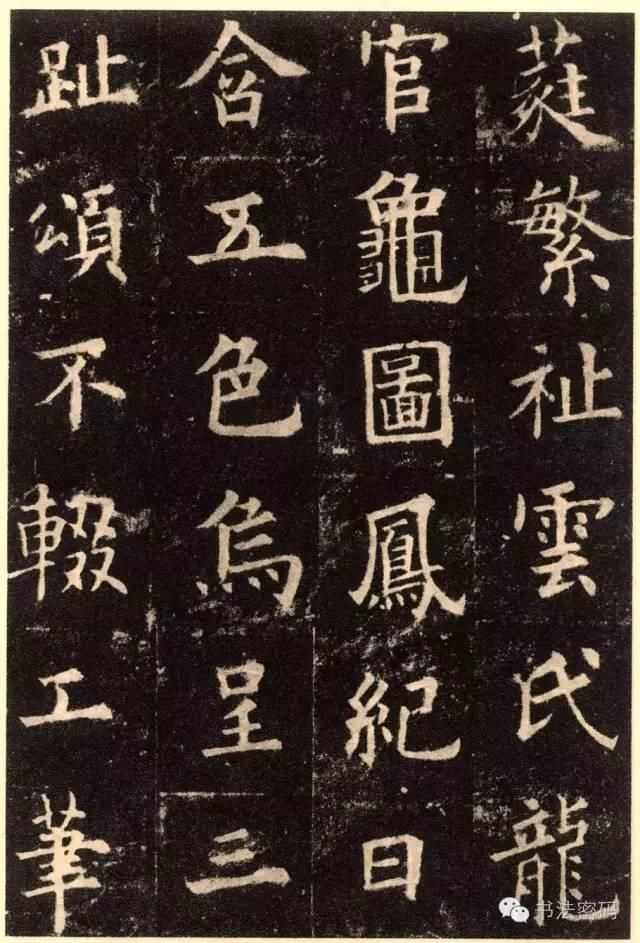 蕤繁祉雲氏龍
官龜圖鳳紀日
含五色烏呈三
趾頌不輟工筆
书法密码